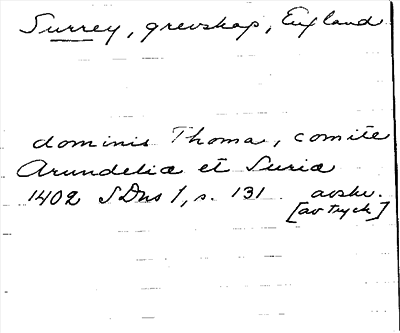 Surrey, grevskap, England
dominis Thoma, comite
Arundeliæ et Suriæ
1402 SDns 1, s. 131 avskr.
[av tryck]